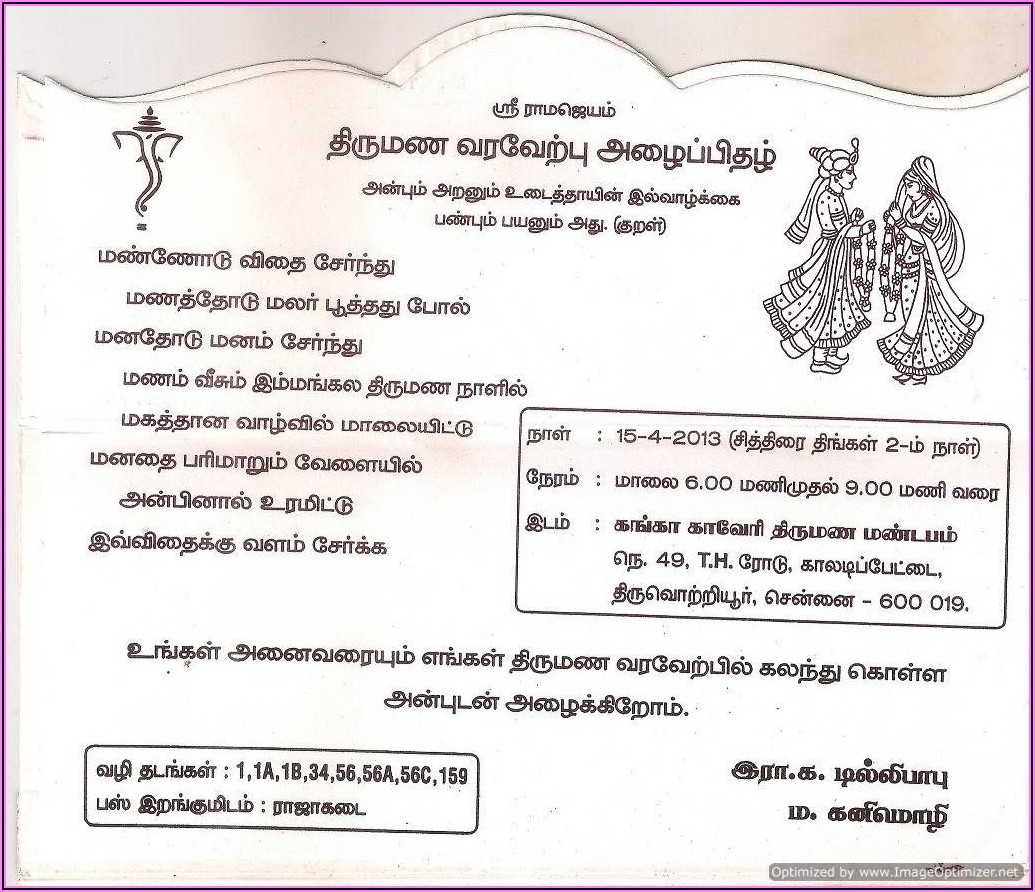 ஸ்ரீ ராமஜெயம்
திருமண வரவேற்பு அழைப்பிதழ்
அன்பும் அறனும் உடைத்தாயின் இல்வாழ்க்கை
பண்பும் பயனும் அது. (குறள்)
மண்ணோடு விதை சேர்ந்து
மணத்தோடு மலர் பூத்தது போல்
மனதோடு மனம் சேர்ந்து
மணம் வீசும் இம்மங்கல திருமண நாளில்
மகத்தான வாழ்வில் மாலையிட்டு
மனதை பரிமாறும் வேளையில்
அன்பினால் உரமிட்டு
இவ்விதைக்கு வளம் சேர்க்க
நாள் : 15-4-2013 (சித்திரை திங்கள் 2-ம் நாள்)
நேரம் : மாலை 6.00 மணிமுதல் 9.00 மணி வரை
இடம் : கங்கா காவேரி திருமண மண்டபம்
நெ. 49, T.H. ரோடு, காலடிப்பேட்டை,
திருவொற்றியூர், சென்னை - 600 019.
உங்கள் அனைவரையும் எங்கள் திருமண வரவேற்பில் கலந்து கொள்ள
அன்புடன் அழைக்கிறோம்.
வழி தடங்கள் : 1,1A,1B,34,56,56A,56C,159
பஸ் இறங்குமிடம் : ராஜாகடை
இரா.க. டில்லிபாபு
ம. கனிமொழி
Optimized by www.ImageOptimizer.net